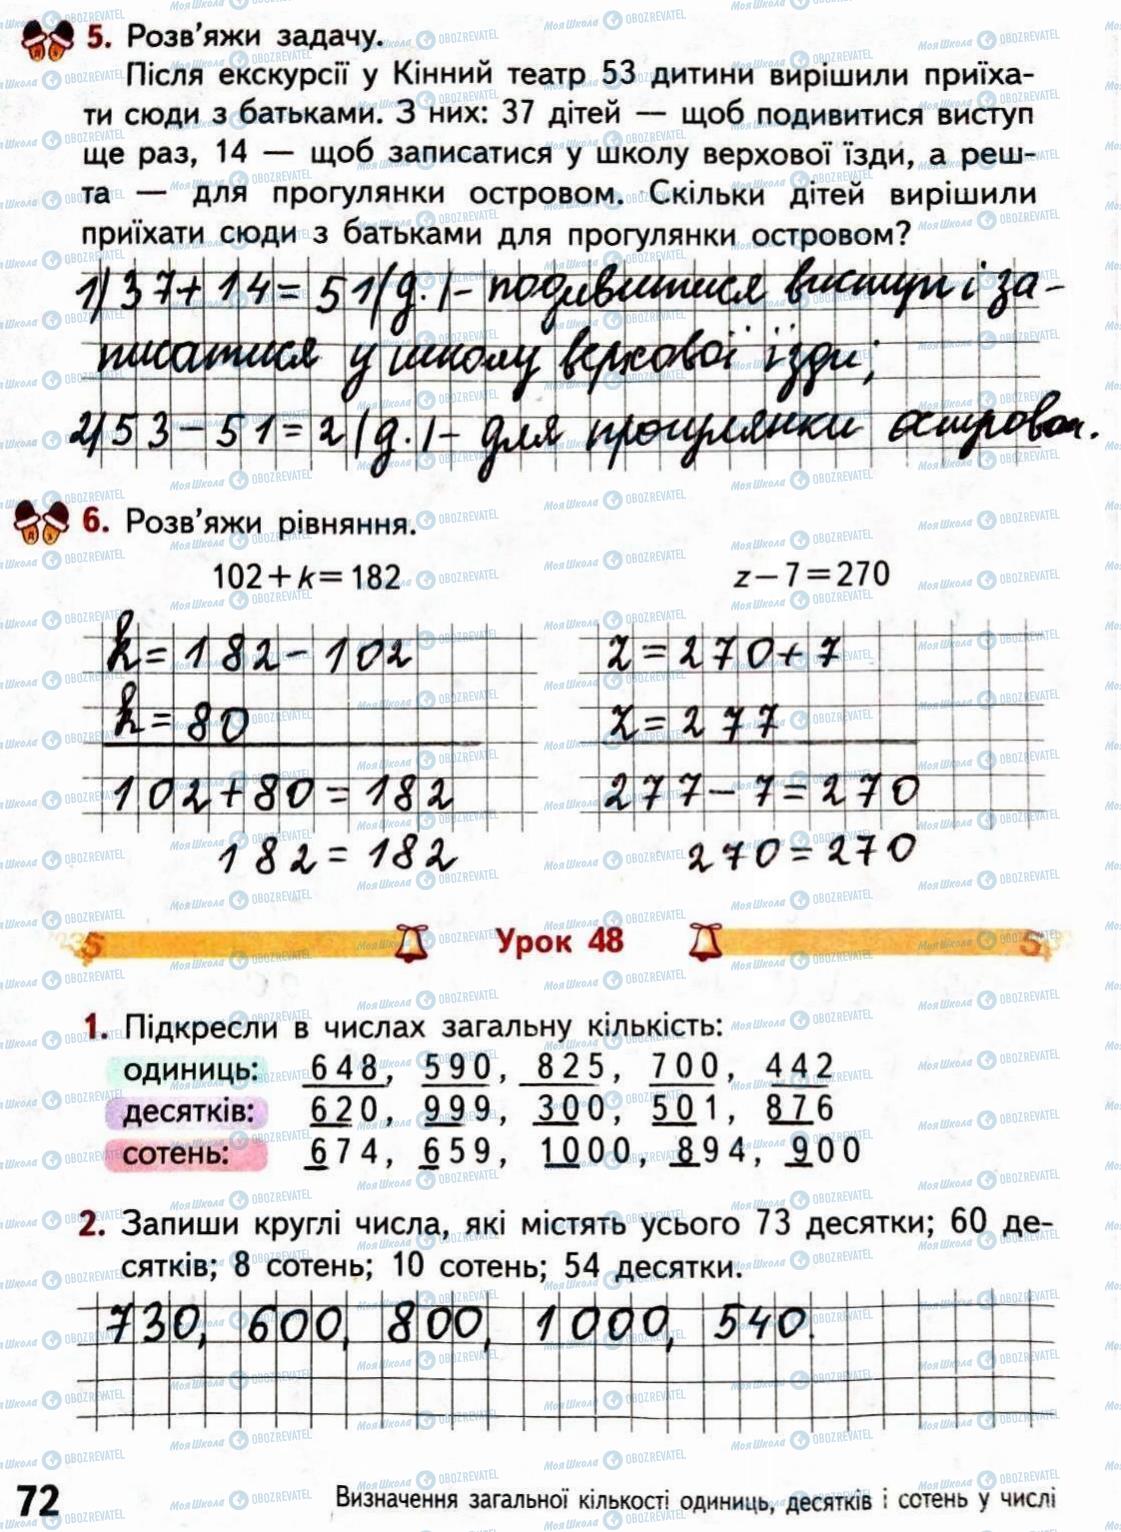 5. Розв'яжи задачу.
Після екскурсії у Кінний театр 53 дитини вирішили приїха-
ти сюди з батьками. З них: 37 дітей — щоб подивитися виступ
ще раз, 14 — щоб записатися у школу верхової їзди, а реш-
та — для прогулянки островом. Скільки дітей вирішили
приїхати сюди з батьками для прогулянки островом?
1) 37 + 14 = 51 (д.) - подивитися виступ і за-
писатися у школу верхової їзди;
2) 53 - 51 = 2 (д.) - для прогулянки островом.
6. Розв'яжи рівняння.
102 + k = 182 z − 7 = 270
k = 182 - 102 z = 270 + 7
k = 80 z = 277
102 + 80 = 182 277 - 7 = 270
182 = 182 270 = 270
Урок 48
1. Підкресли в числах загальну кількість:
одиниць: 648, 590, 825, 700, 442
десятків: 620, 999, 300, 501, 876
сотень: 674, 659, 1000, 894, 900
2. Запиши круглі числа, які містять усього 73 десятки; 60 де-
сятків; 8 сотень; 10 сотень; 54 десятки.
730, 600, 800, 1000, 540.
72 Визначення загальної кількості одиниць, десятків і сотень у числі